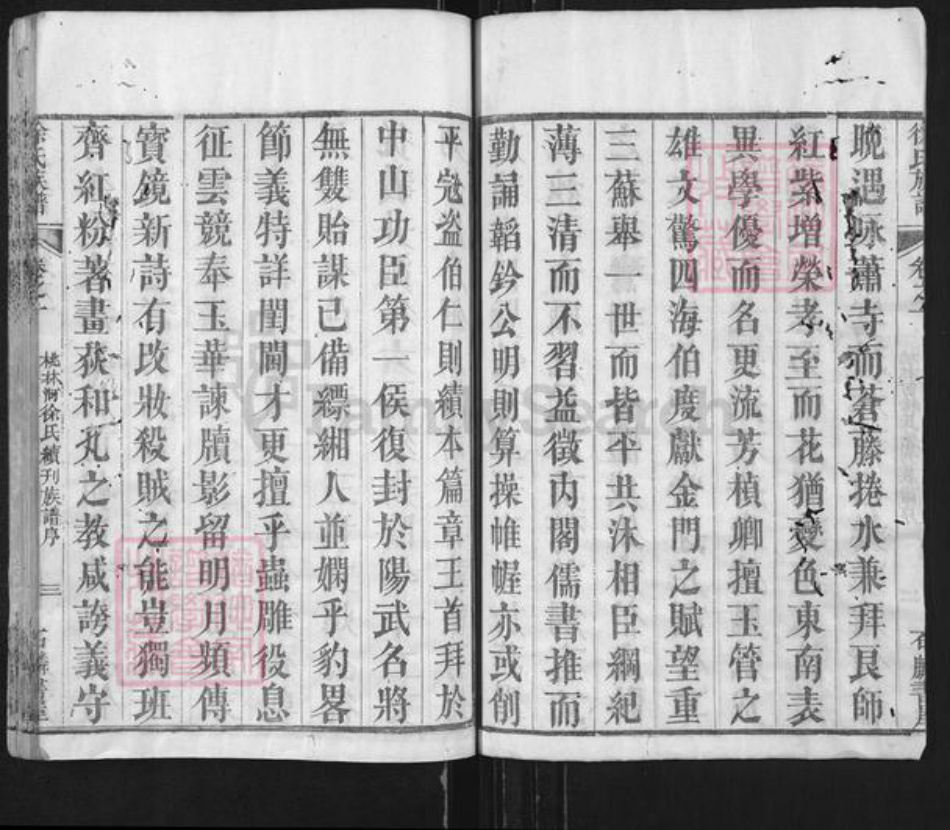 徐氏族譜
晚遇咏蕭寺而蒼藤捲水兼拜艮師
紅紫增榮孝至而花猶變色東南表
異學優而名更流芳楨卿擅玉管之
雄文驚四海伯度獻金門之賦望重
三蘇舉一世而皆平共沐相臣綱紀
薄三清而不習益徵內閣儒書推而
勤誦韜鈐公明則算操帷幄亦或創
平寇盗伯仁則績本篇章王首拜於
中山功臣第一侯復封於陽武名將
無雙貽謀已備縹緗人並嫻乎豹畧
節義特詳閨閫才更擅乎蟲雕役息
征雲競奉玉華諫牘影留明月頻傳
寶鏡新詩有攺妝殺賊之能豈獨班
齊紅粉著畫荻和丸之教咸誇義守
徐氏族譜
卷之一
桃林洞徐氏續刊族譜序
三
石麟書屋
FamilySearch